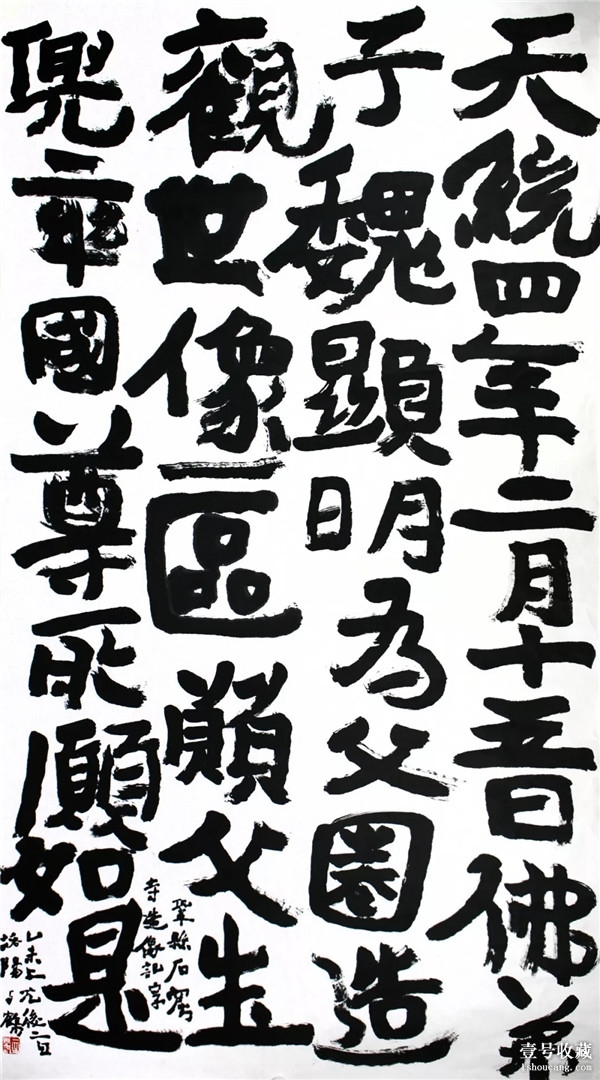 天統四年二月十五日佛弟
子魏顯明为父圈造
觀世像一區願父生
兜率國尊所願如是
鞏縣石窟
寺造像記
乙未上元後二日
洛陽
壹号收藏
1shoucang.com